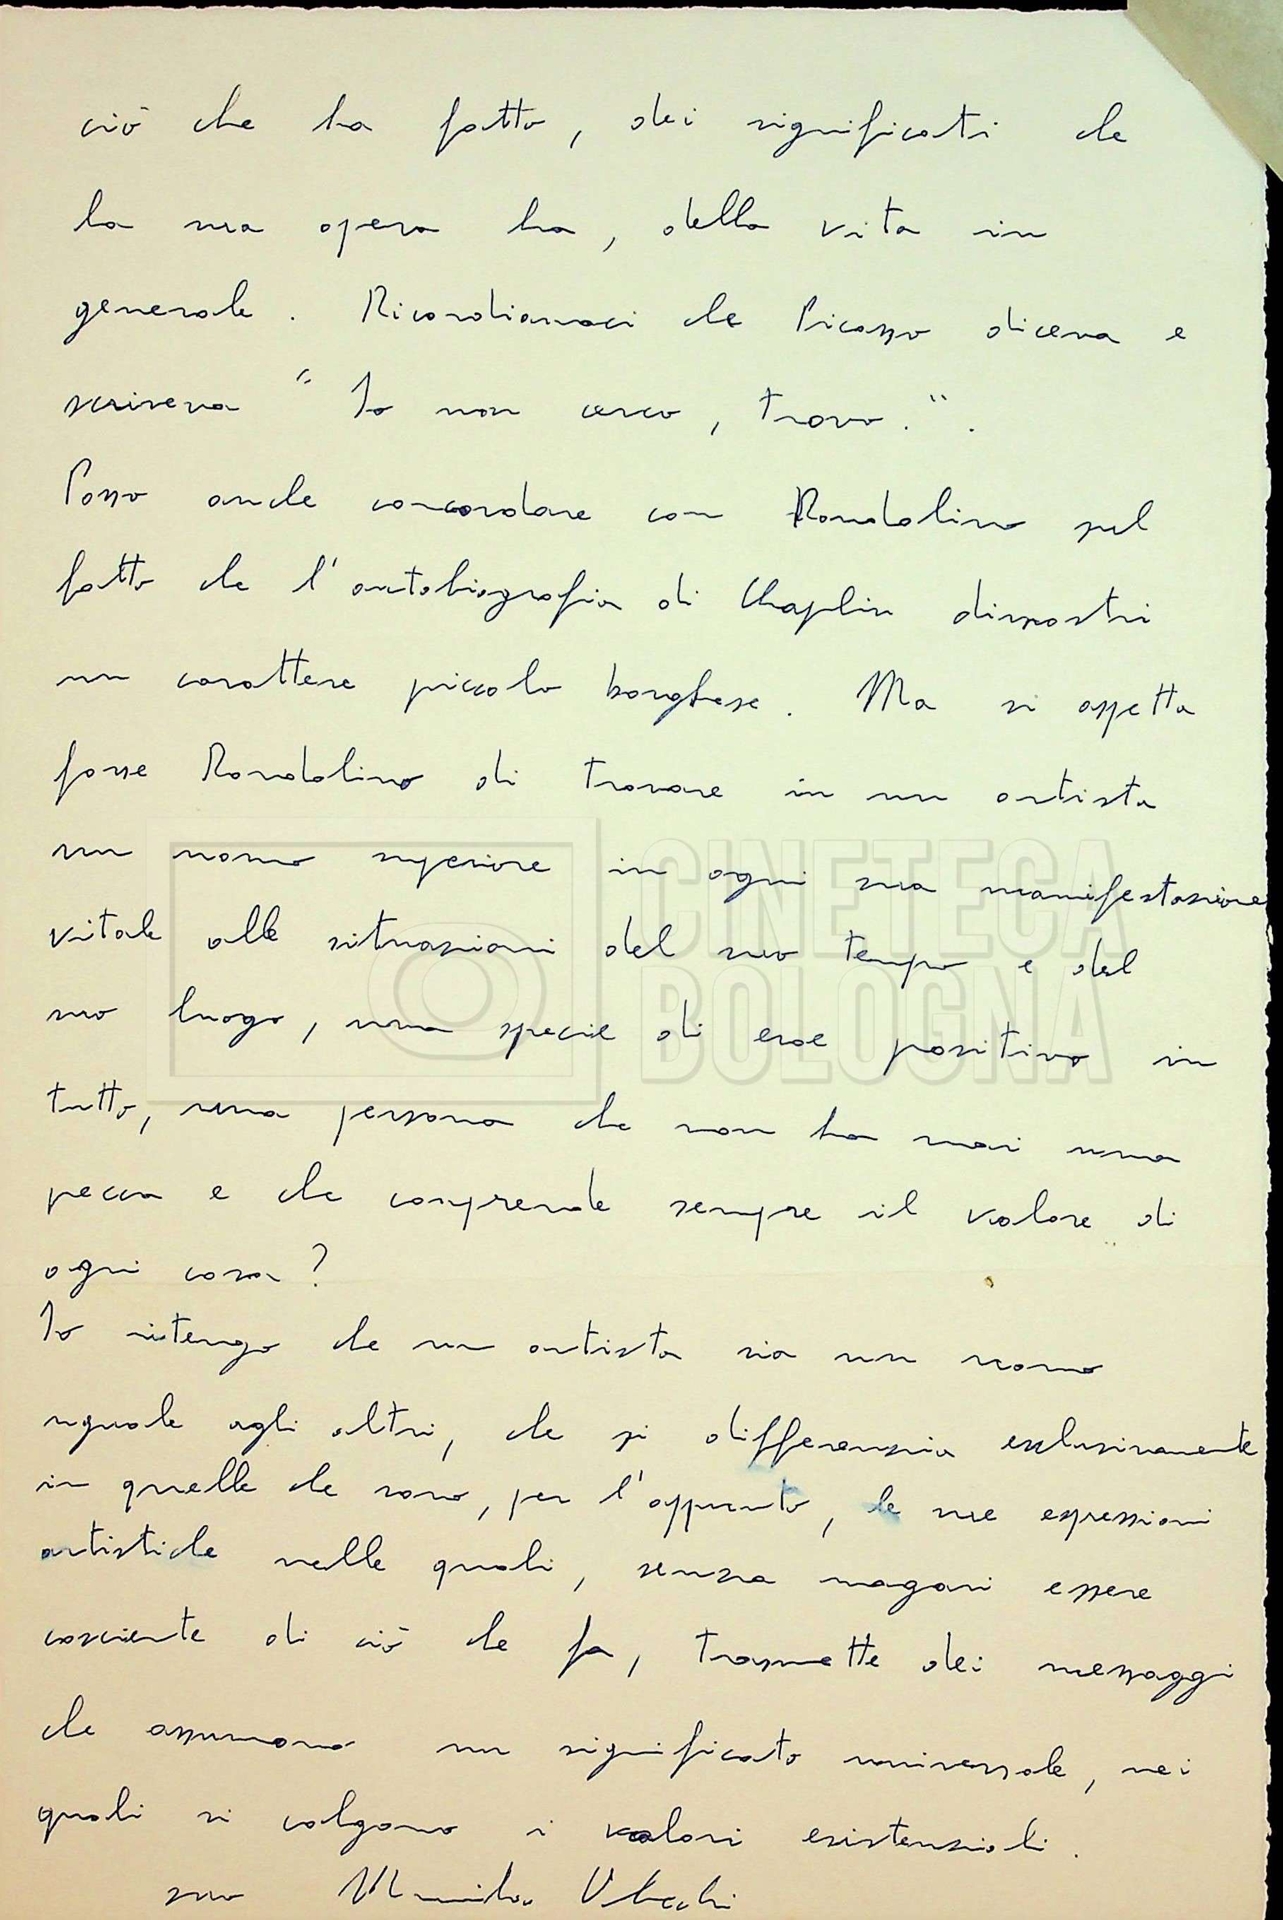 ciò che ha fatto, dei significati che
la sua opera ha, della vita in
generale. Ricordiamoci che Picasso diceva e
scriveva "Io non cerco, trovo.".
Posso anche concordare con Rondolino sul
fatto che l'autobiografia di Chaplin dimostri
un carattere piccolo borghese. Ma si aspetta
forse Rondolino di trovare in un artista
un uomo superiore in ogni sua manifestazione
vitale alle situazioni del suo tempo e del
suo luogo, una specie di eroe positivo in
tutto, una persona che non ha mai una
pecca e che comprende sempre il valore di
ogni cosa?
Io ritengo che un artista sia un uomo
uguale agli altri, che si differenzia esclusivamente
in quelle che sono, per l'appunto, le sue espressioni
artistiche nelle quali, senza magari essere
cosciente di ciò che fa, trasmette dei messaggi
che assumono un significato universale, nei
quali si colgono i valori esistenziali.
suo
CINETECA
BOLOGNA